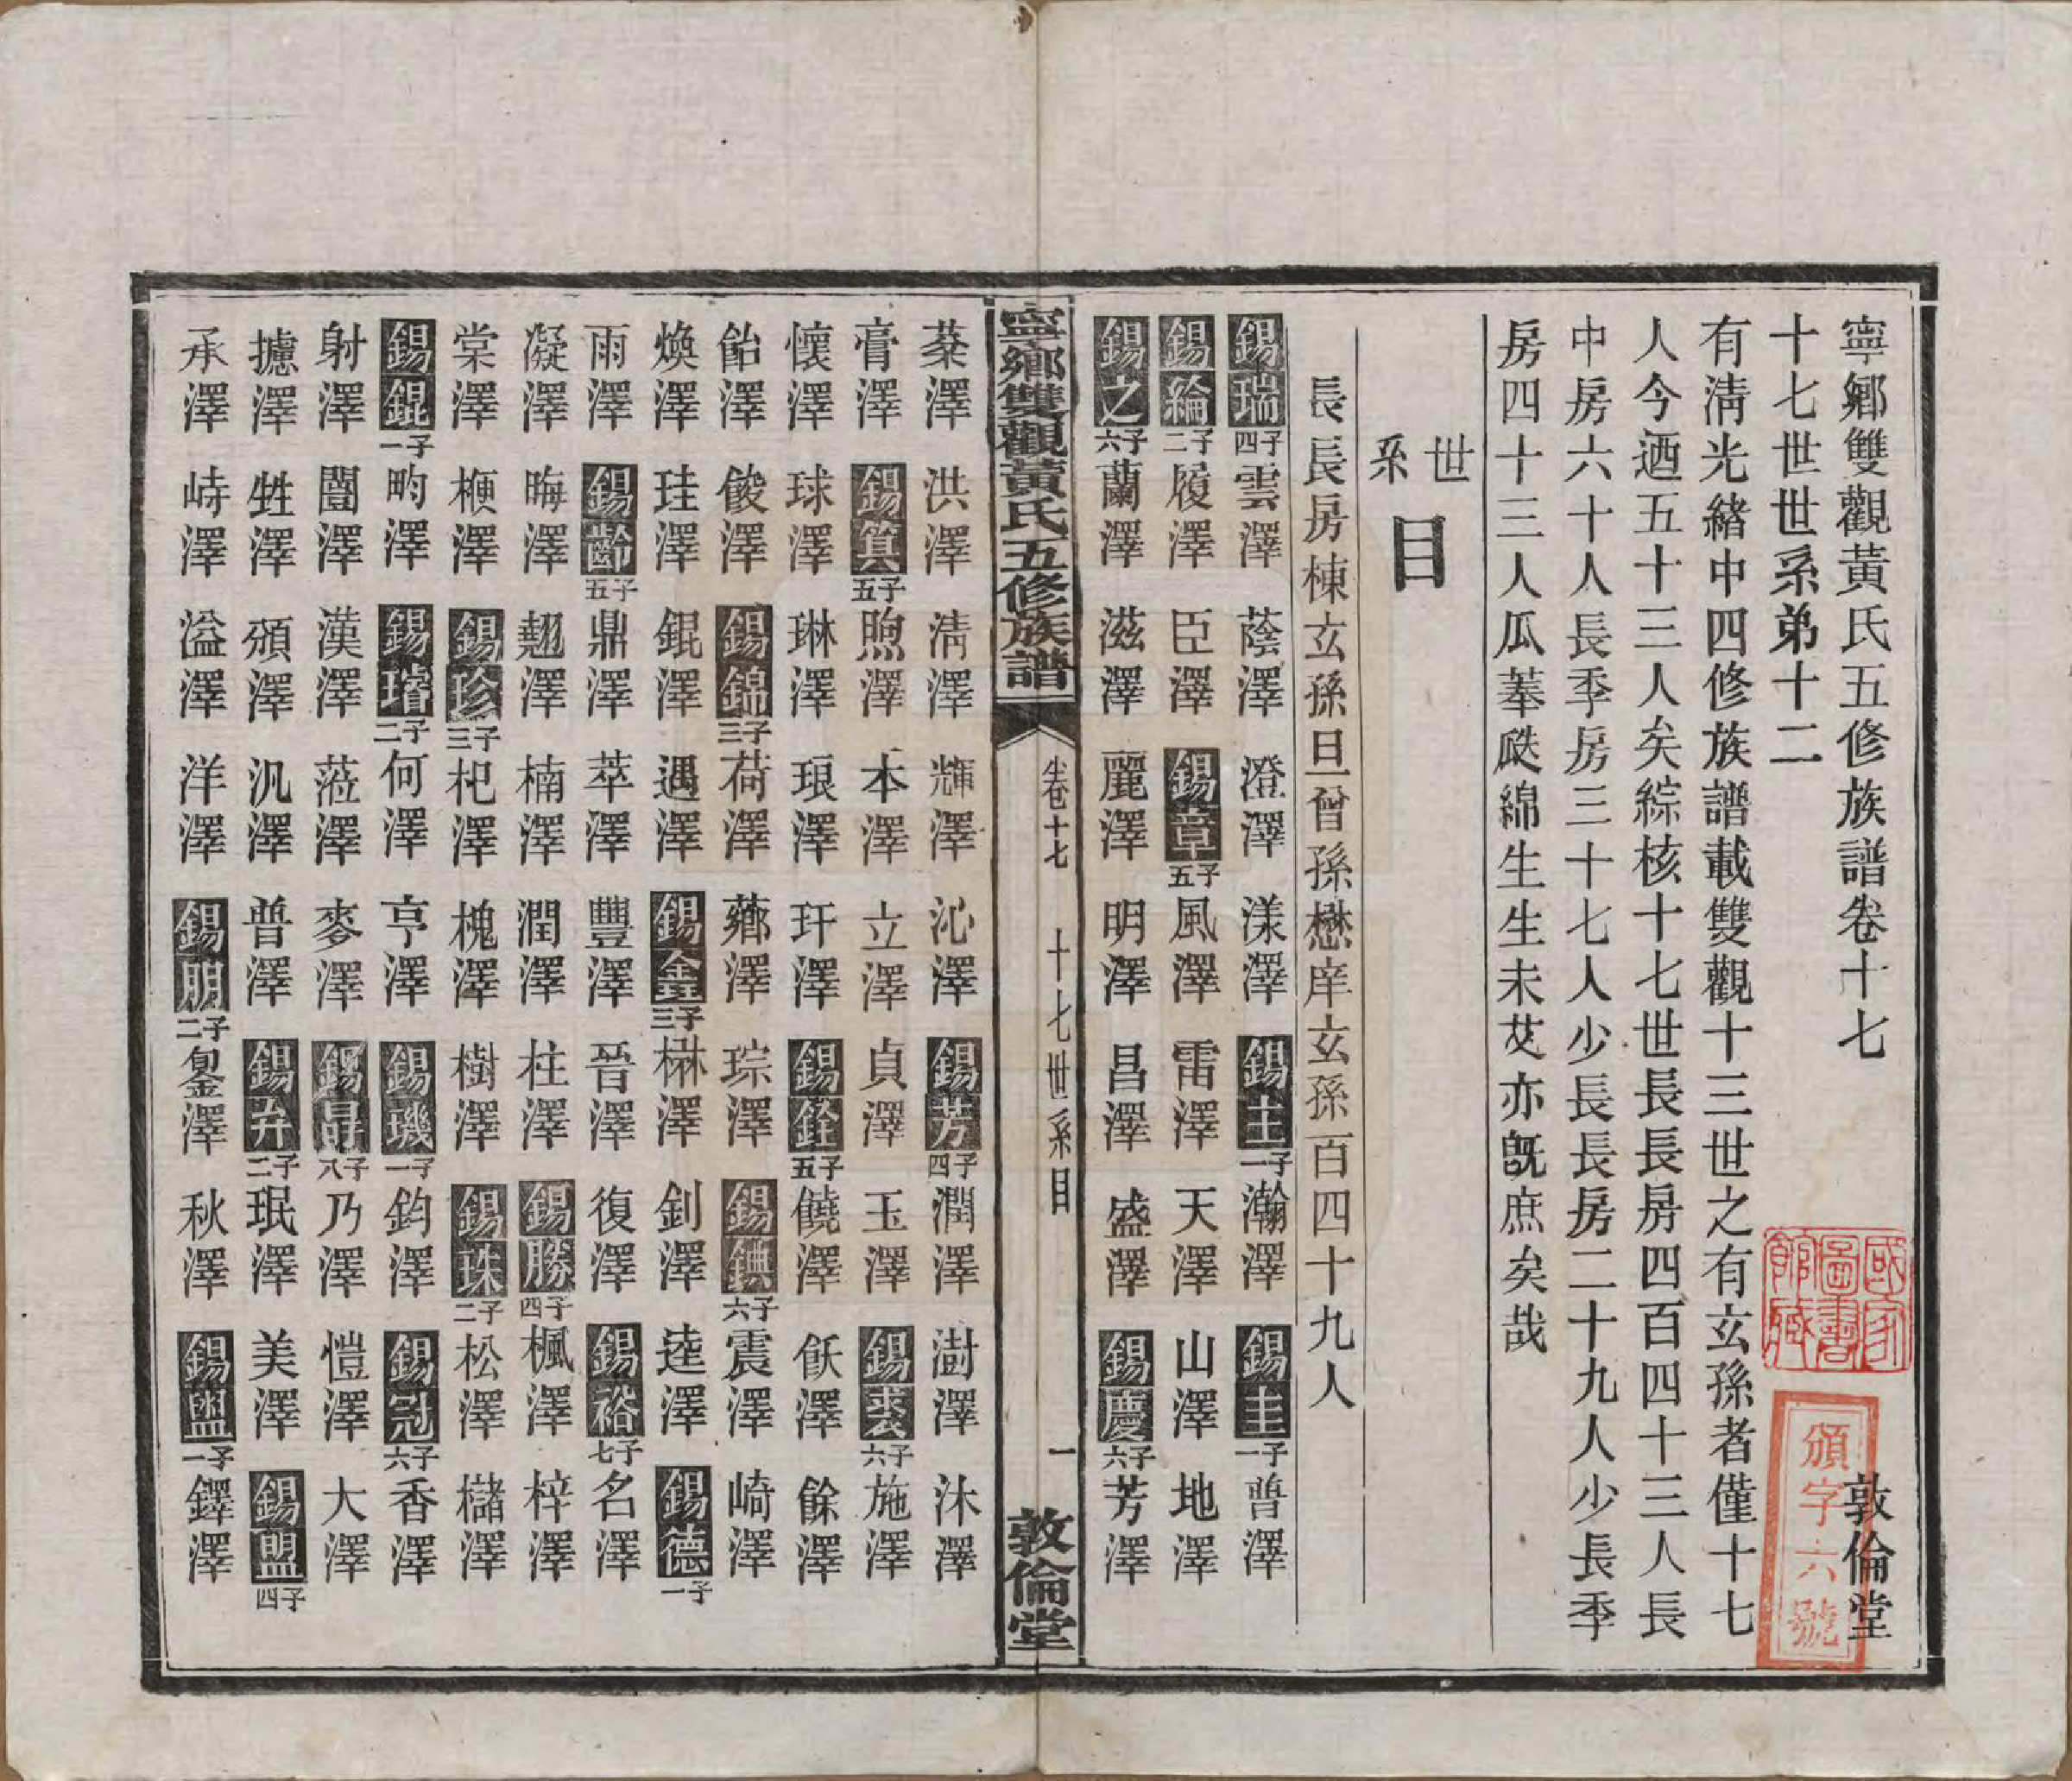 寧鄉雙觀黃氏五修族譜卷十七　敦倫堂
十七世世系弟十二
有淸光緒中四修族譜載雙觀十三世之有玄孫者僅十七
人今迺五十三人矣綜核十七世長長房四百四十三人長
中房六十人長季房三十七人少長長房二十九人少長季
房四十三人瓜摹瓞綿生生未艾亦旣庶矣哉
世系目
長長房棟玄孫旦曾孫懋庠玄孫百四十九人
錫瑞四子 雲澤 蔭澤 澄澤 漾澤 錫土一子 瀚澤 錫圭一子 普澤
錫綸二子 履澤 臣澤 錫章五子 風澤 雷澤 天澤 山澤 地澤
錫之六子 蘭澤 滋澤 麗澤 明澤 昌澤 盛澤 錫慶六子 芳澤
寧鄉雙觀黃氏五修族譜 卷十七 十七世系目 一 敦倫堂
棻澤 洪澤 淸澤 輝澤 沁澤 錫芳四子 潤澤 澍澤 沐澤
膏澤 錫箕五子 煦澤 本澤 立澤 貞澤 玉澤 錫裘六子 施澤
懷澤 球澤 琳澤 琅澤 玕澤 錫銓五子 饒澤 飫澤 餘澤
飴澤 餕澤 錫錦三子 荷澤 薌澤 琮澤 錫錪六子 震澤 崎澤
煥澤 珪澤 錕澤 遇澤 錫金三子 楙澤 釗澤 逵澤 錫德一子
雨澤 錫齡五子 鼎澤 萃澤 豐澤 晉澤 復澤 錫裕七子 名澤
凝澤 晦澤 翹澤 楠澤 潤澤 柱澤 錫勝四子 楓澤 梓澤
棠澤 梗澤 錫珍三子 杞澤 槐澤 樹澤 錫珠二子 松澤 櫧澤
錫錕一子 畇澤 錫璿二子 何澤 亨澤 錫璣一子 鈞澤 錫冠六子 香澤
射澤 闓澤 漢澤 蒞澤 麥澤 錫晷八子 乃澤 愷澤 大澤
攄澤 甡澤 頒澤 汎澤 普澤 錫弁二子 珉澤 美澤 錫盟四子
承澤 峙澤 溢澤 洋澤 錫朋二子 鋆澤 秋澤 錫盥一子 鐸澤
國家圖書館藏
頒字六號